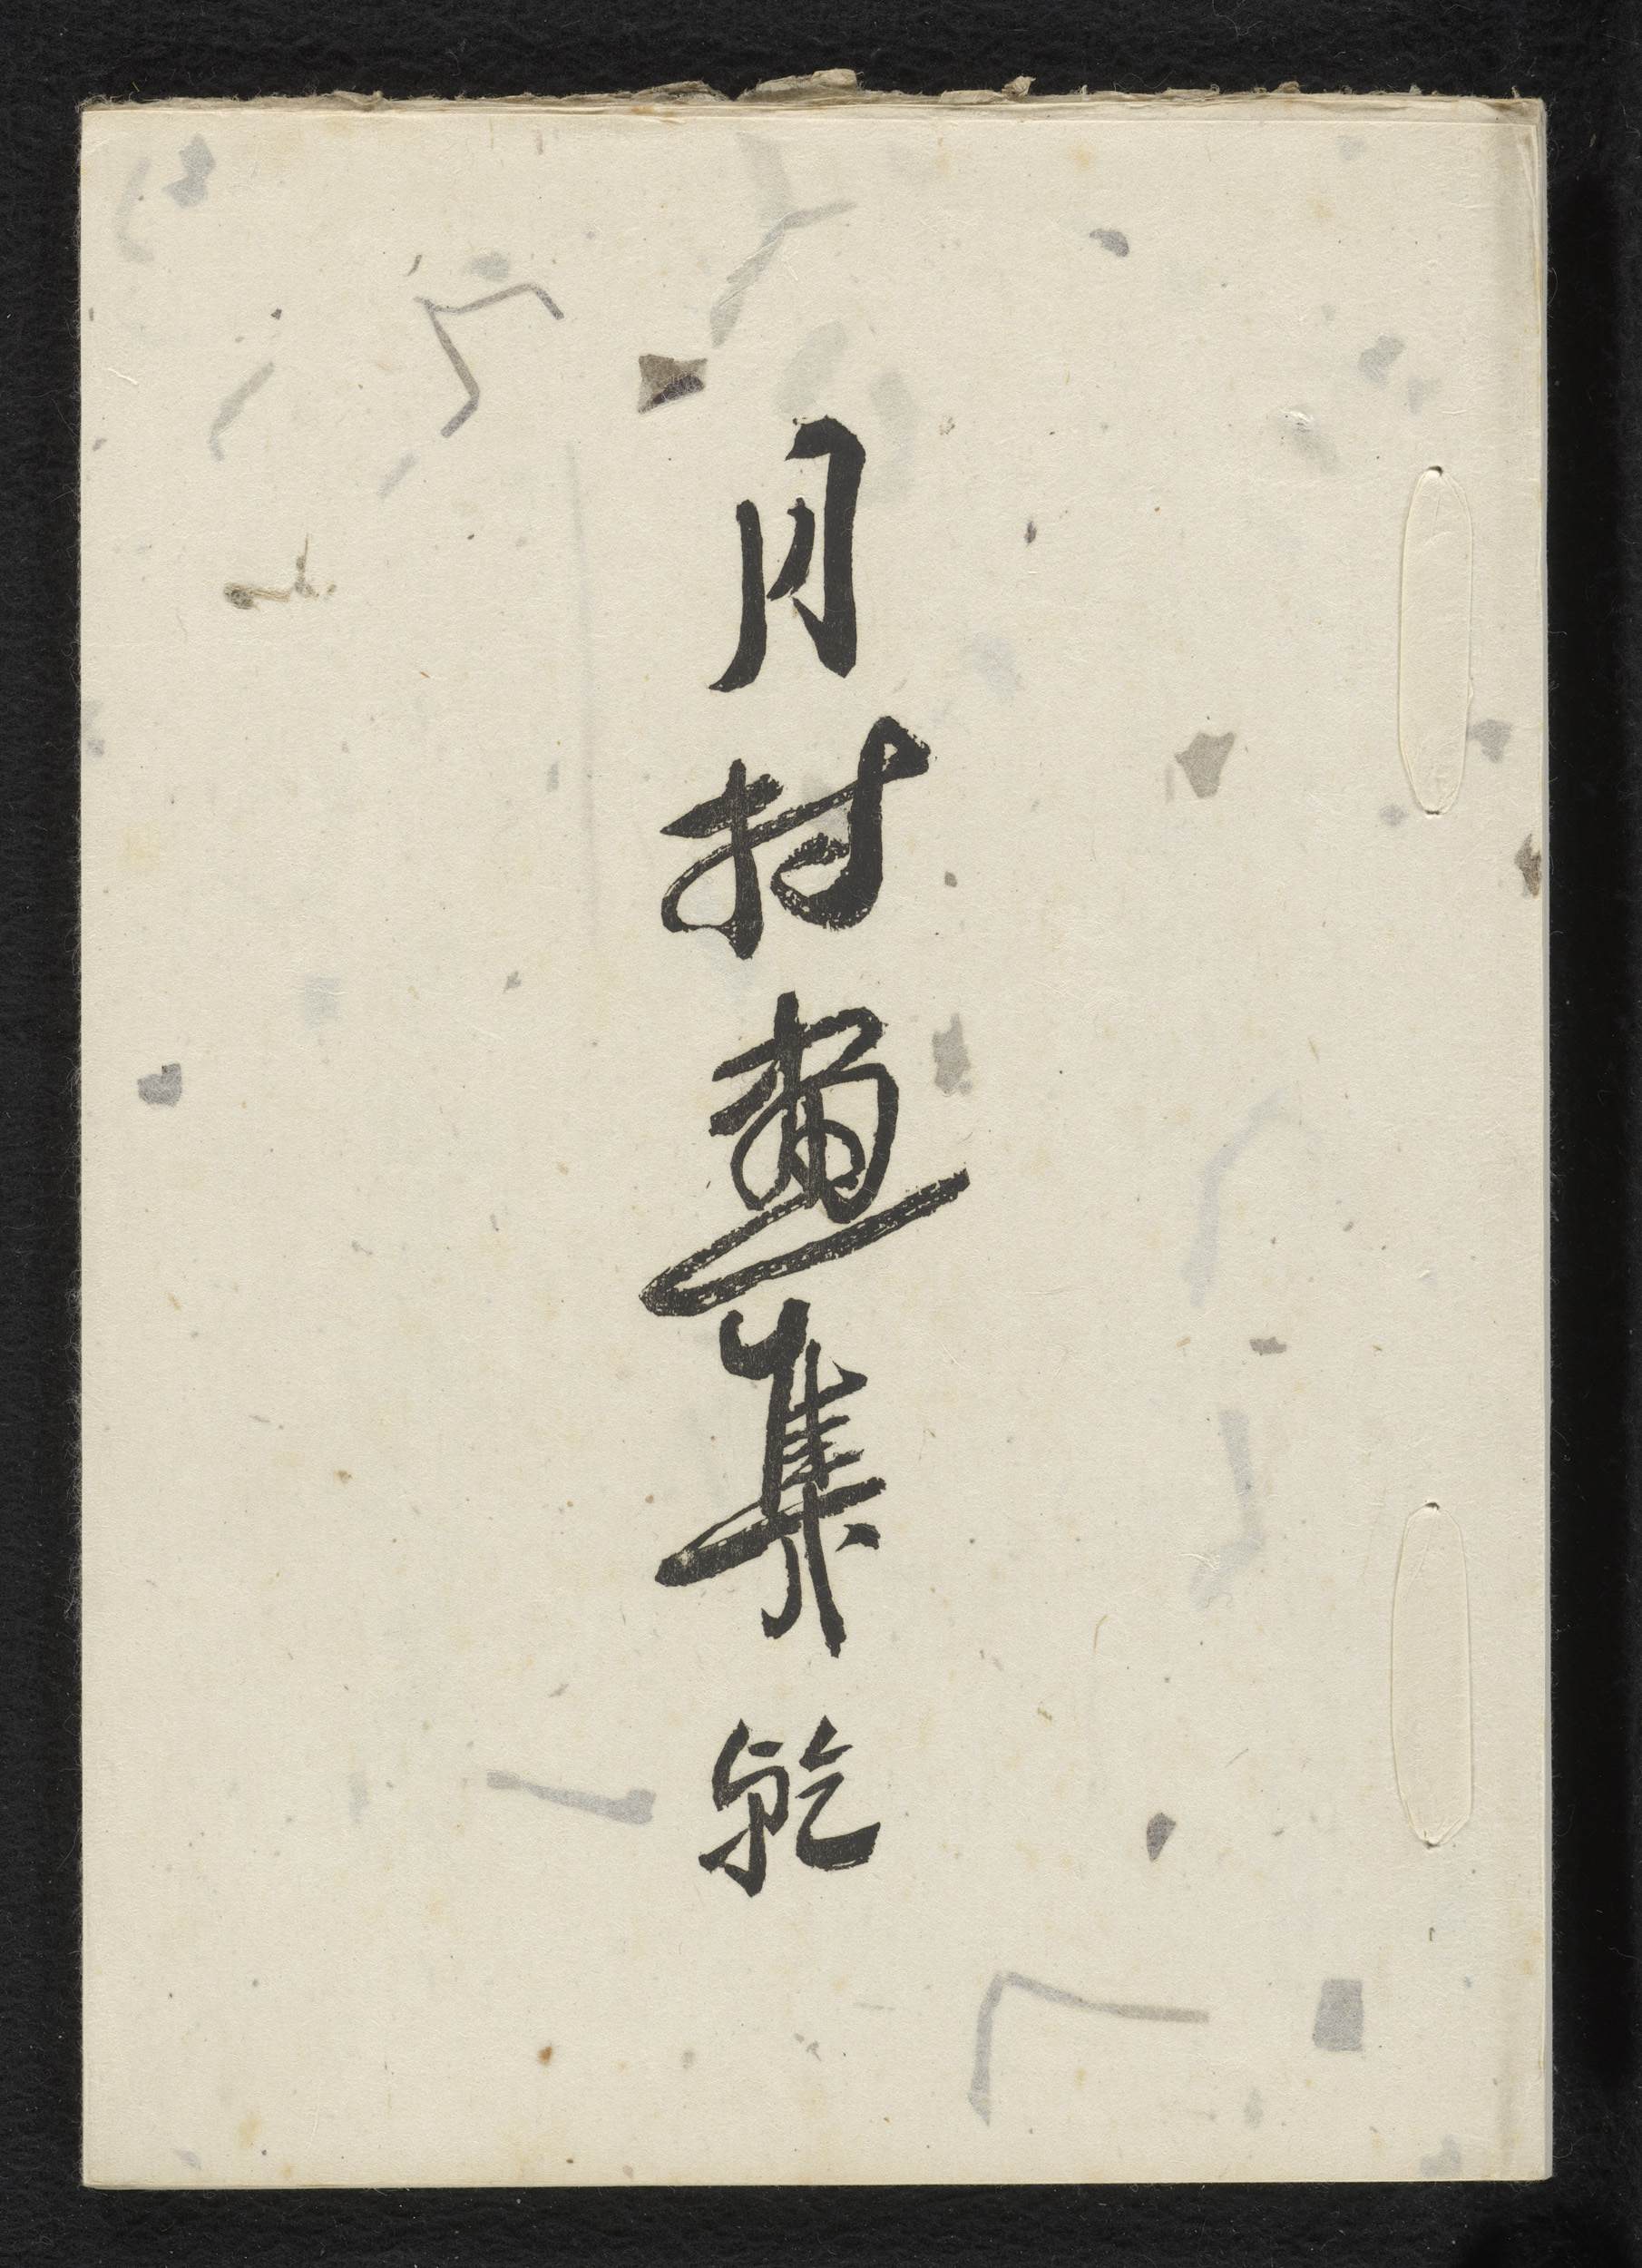 月村画集 乾